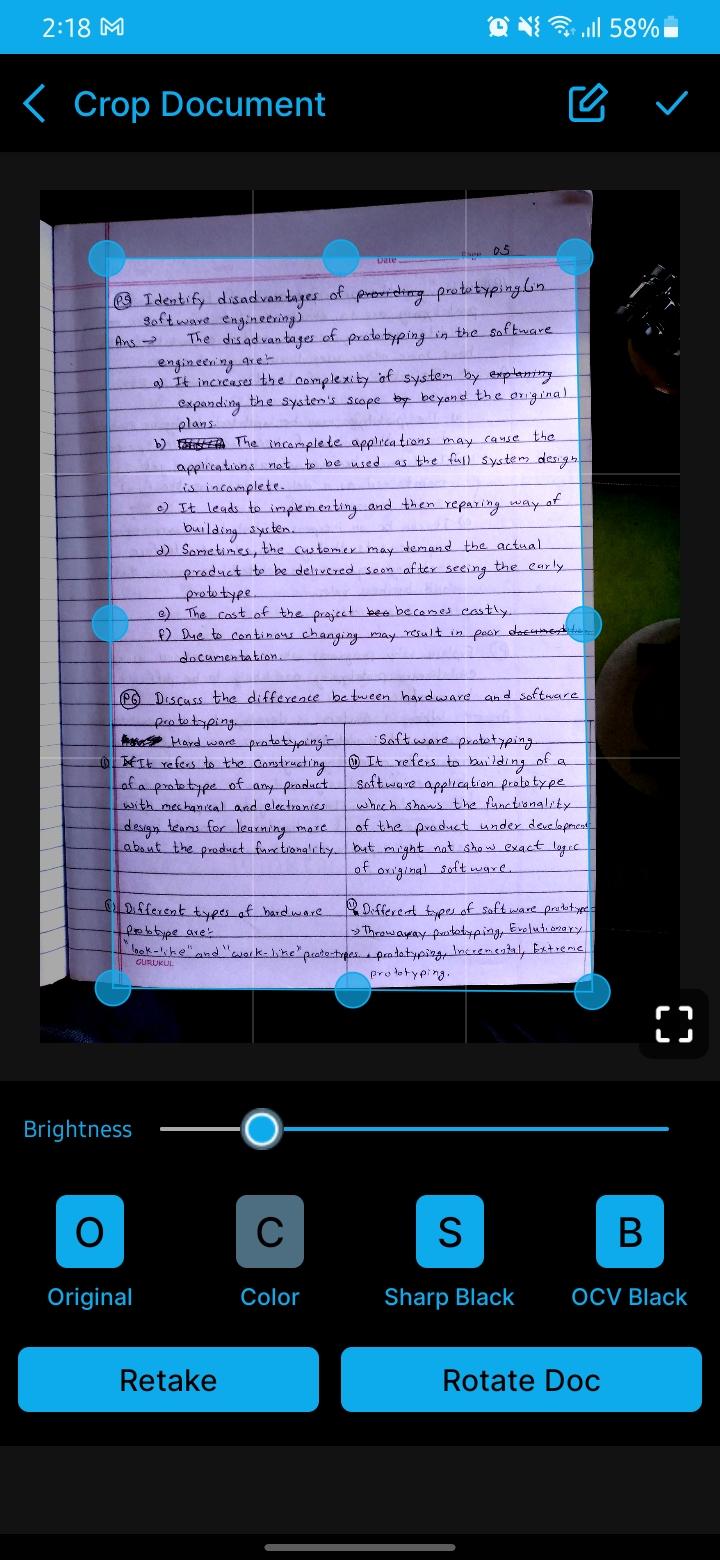 2:18 58%
Crop Document
Date Page 05
P5 Identify disadvantages of providing prototyping (in
software engineering)
Ans → The disadvantages of prototyping in the software
engineering are:-
a) It increases the complexity of system by explaning
expanding the system's scope by beyond the original
plans.
b) The incomplete applications may cause the
applications not to be used as the full system design
is incomplete.
c) It leads to implementing and then reparing way of
building system.
d) Sometimes, the customer may demand the actual
product to be delivered soon after seeing the early
prototype.
e) The cost of the project bec becomes costly.
f) Due to continous changing may result in poor documentation
documentation.
P6 Discuss the difference between hardware and software
prototyping.
Hardware prototyping:-
Software prototyping
i) It It refers to the constructing
of a prototype of any product
with mechanical and electronics
design teams for learning more
about the product functionality.
i) It refers to building of a
software application prototype
which shows the functionality
of the product under development
but might not show exact logic
of original software.
ii) Different types of hardware
protype are:-
"look-like" and "work-like" prototypes.
GURUKUL
ii) Different types of software prototype
→ Throwaway prototyping, Evolutionary
prototyping, Incremental, Extreme
prototyping.
Brightness
O C S B
Original Color Sharp Black OCV Black
Retake Rotate Doc